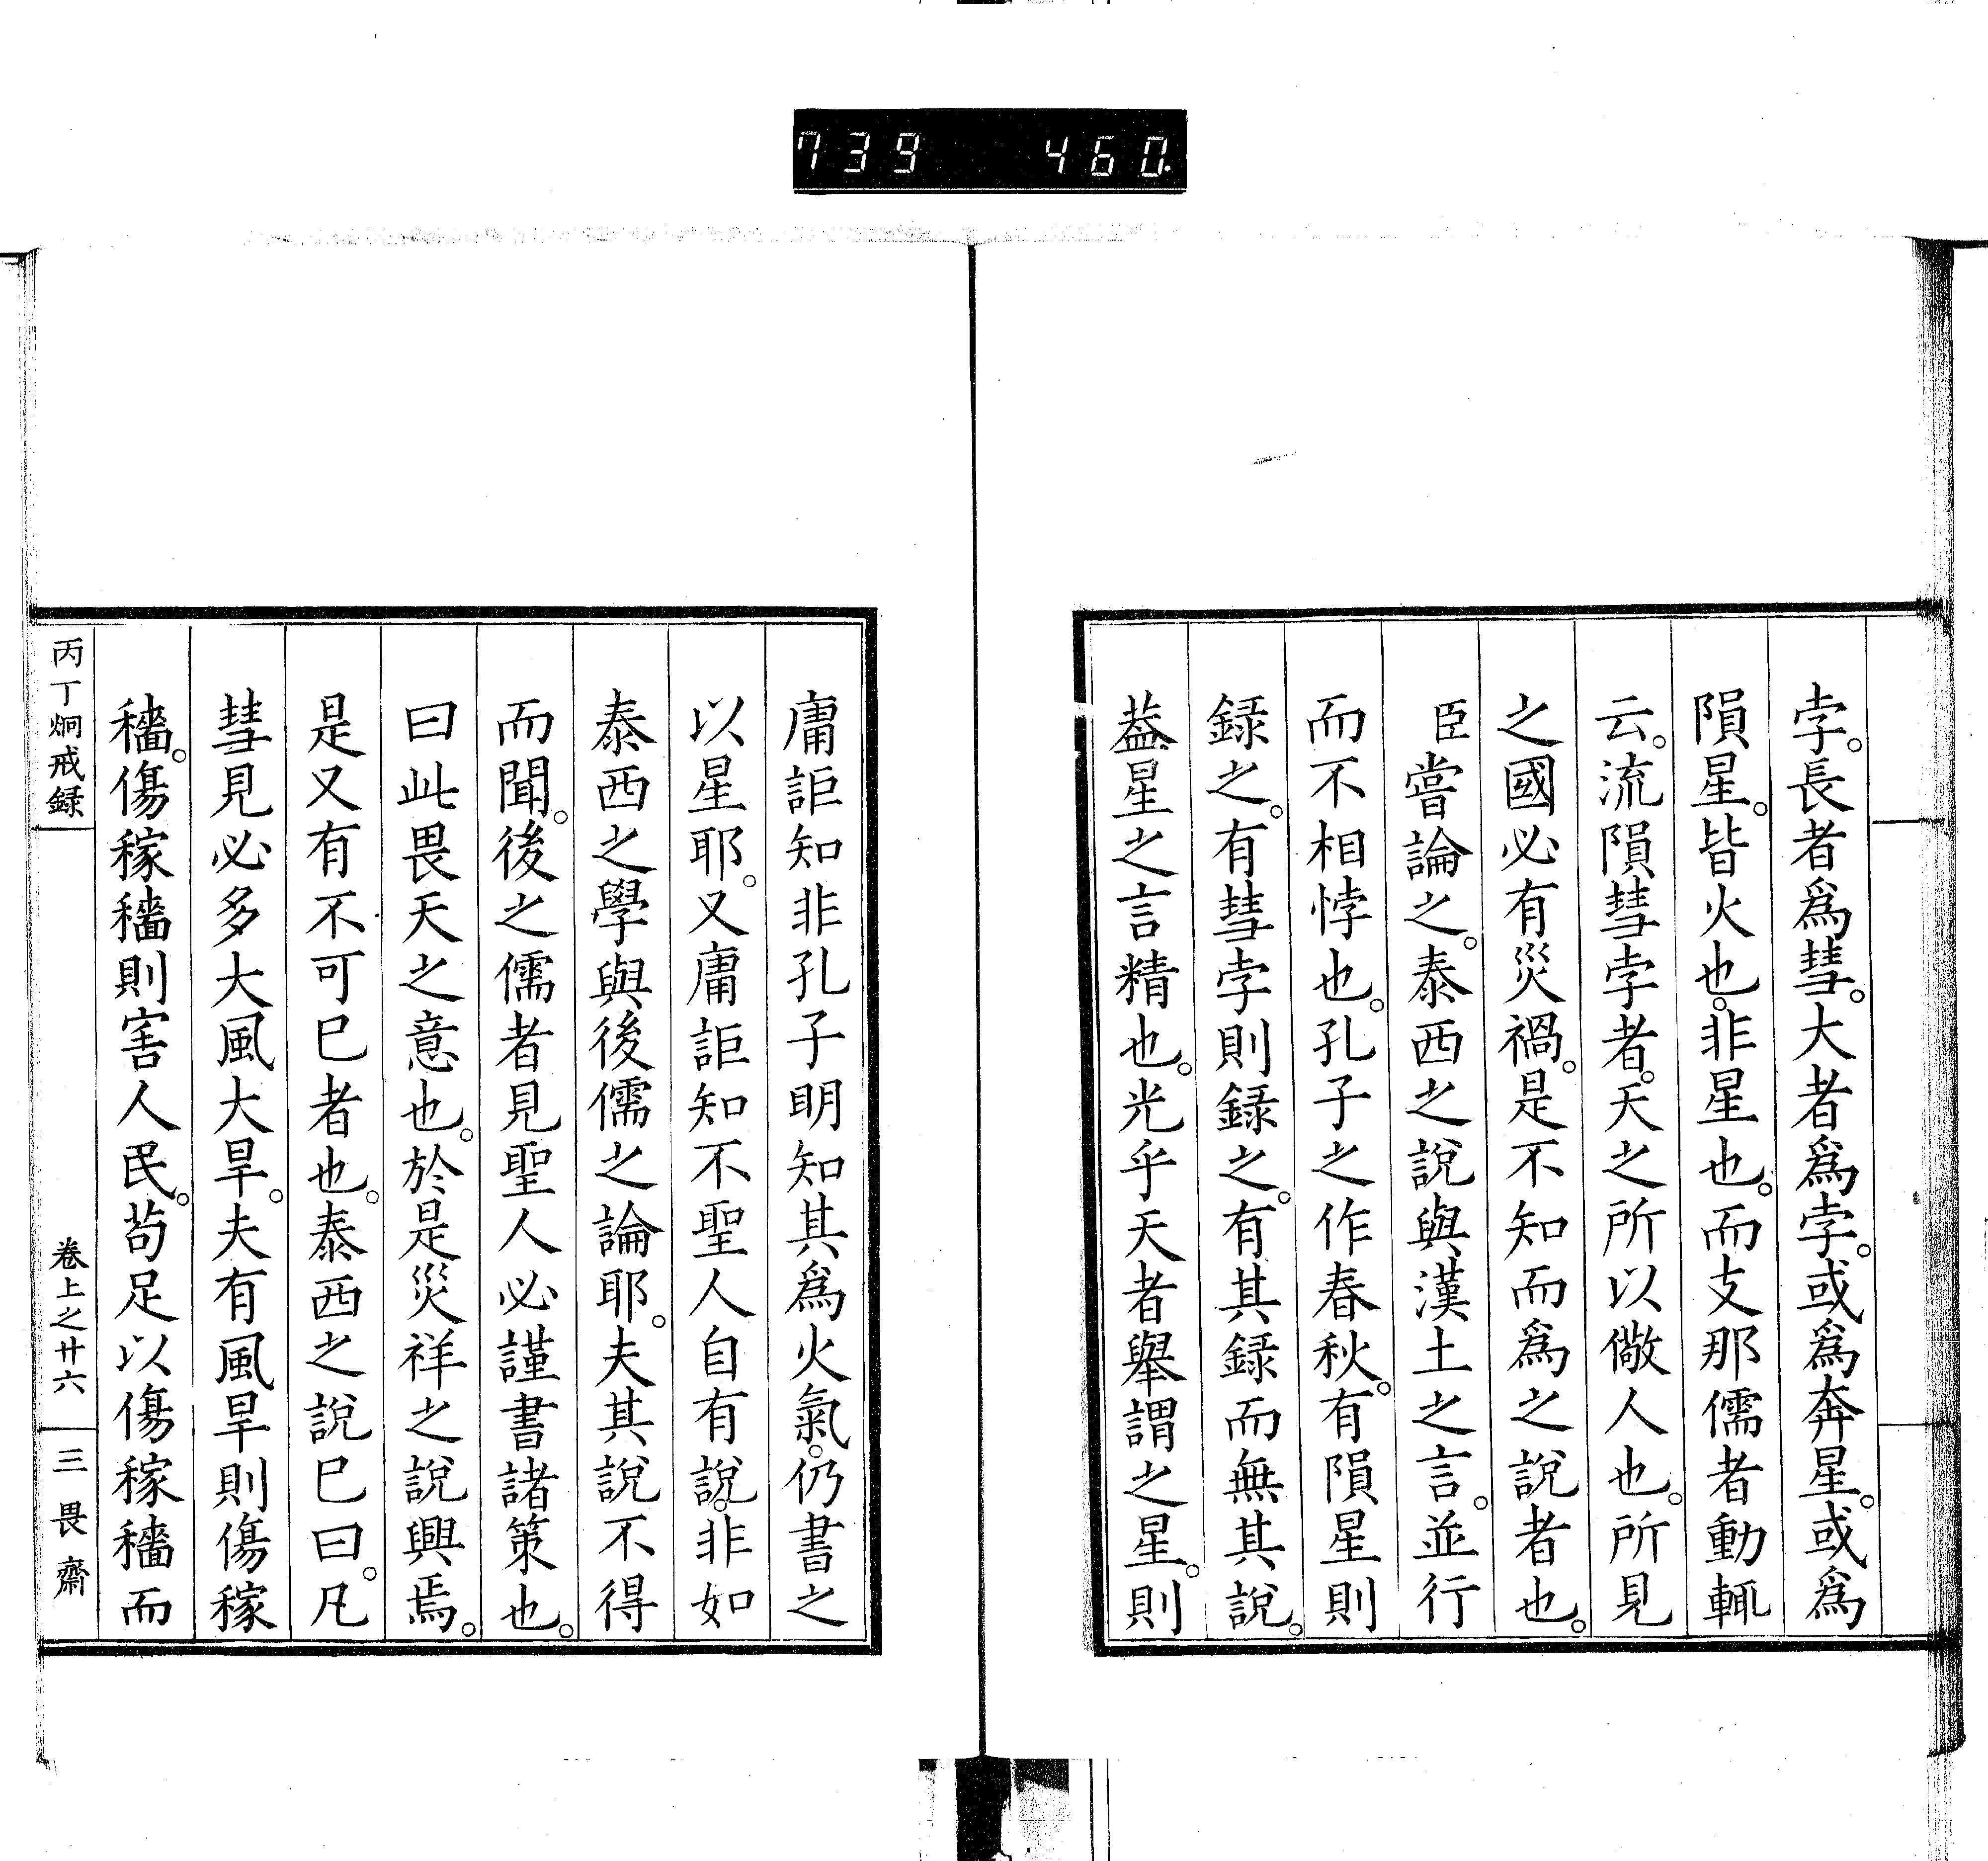 739 460.
孛。長者爲彗。大者爲孛。或爲奔星。或爲
隕星。皆火也。非星也。而支那儒者動輒
云。流隕彗孛者。天之所以儆人也。所見
之國必有災禍。是不知而爲之說者也。
臣嘗論之。泰西之說與漢土之言。並行
而不相悖也。孔子之作春秋。有隕星則
録之。有彗孛則録之。有其録而無其說。
葢星之言精也。光乎天者舉謂之星。則
庸詎知非孔子明知其爲火氣。仍書之
以星耶。又庸詎知不聖人自有說。非如
泰西之學與後儒之論耶。夫其說不得
而聞。後之儒者見聖人必謹書諸策也。
曰此畏天之意也。於是災祥之說興焉。
是又有不可已者也。泰西之說已曰。凡
彗見必多大風大旱。夫有風旱則傷稼
穡。傷稼穡則害人民。苟足以傷稼穡而
丙丁炯戒録
卷上之廿六
三畏齋